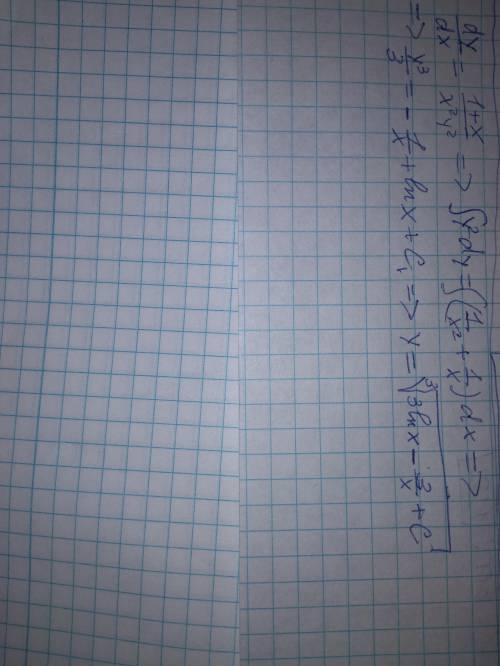 dy/dx = (1+x)/(x²y²) => ∫y²dy = ∫(1/x² + 1/x)dx =>
=> y³/3 = -1/x + lnx + C₁ => y = ³√(3lnx - 3/x + C)